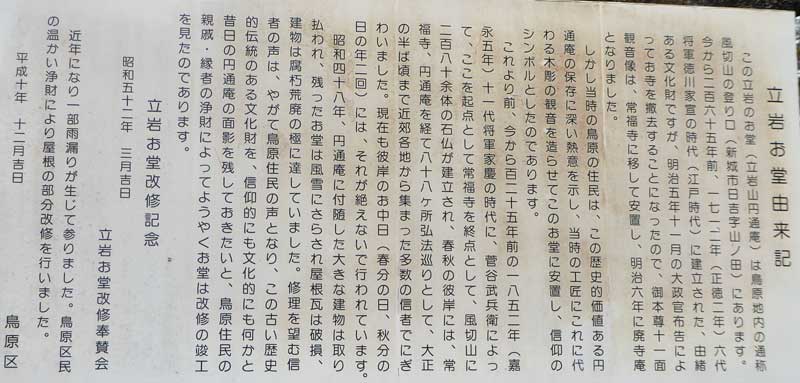 立岩お堂由来記
この立岩のお堂(立岩山円通庵)は鳥原地内の通称
風切山の登り口(新城市日吉字山ノ田)にあります。
今から二百六十五年前、一七一二年(正徳二年)六代
将軍徳川家宣の時代(江戸時代)に建立された、由緒
ある文化財ですが、明治五年十一月の大政官布告によ
ってお寺を撤去することになったので、御本尊十一面
観音像は、常福寺に移して安置し、明治六年に廃寺庵
となりました。
しかし当時の鳥原の住民は、この歴史的価値ある円
通庵の保存に深い熱意を示し、当時の工匠にこれに代
わる木彫の観音を造らせてこのお堂に安置し、信仰の
シンボルとしたのであります。
これより前、今から百二十五年前の一八五二年(嘉
永五年)十一代将軍家慶の時代に、菅谷武兵衛によっ
て、ここを起点として常福寺を終点として、風切山に
二百八十余体の石仏が建立され、春秋の彼岸には、常
福寺、円通庵を経て八十八ヶ所弘法巡りとして、大正
の半ば頃まで近郊各地から集まった多数の信者でにぎ
わいました。現在も彼岸のお中日(春分の日、秋分の
日の年二回)には、それが絶えないで行われています。
昭和四十八年、円通庵に付随した大きな建物は取り
払われ、残ったお堂は風雪にさらされ屋根瓦は破損、
建物は腐朽荒廃の極に達していました。修理を望む信
者の声は、やがて鳥原住民の声となり、この古い歴史
的伝統のある文化財を、信仰的にも文化的にも何かと
昔日の円通庵の面影を残しておきたいと、鳥原住民の
親戚・縁者の浄財によってようやくお堂は改修の竣工
を見たのであります。
立岩お堂改修記念
昭和五十二年 三月吉日
立岩お堂改修奉賛会
近年になり一部雨漏りが生じて参りました。鳥原区民
の温かい浄財により屋根の部分改修を行いました。
平成十年 十二月吉日
鳥原区